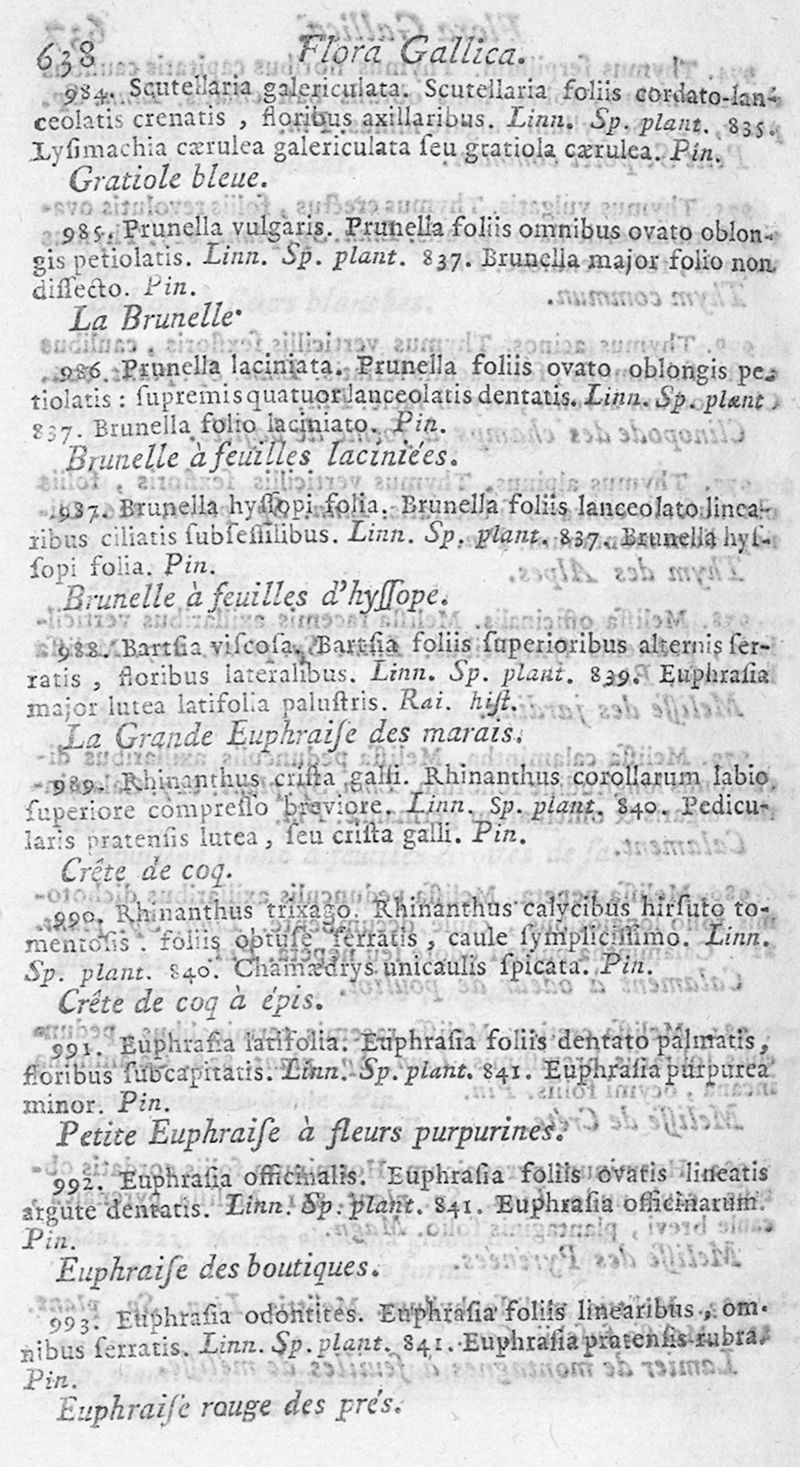 638 Flora Gallica.
984. Scutellaria galericulata. Scutellaria foliis cordato-lan-
ceolatis crenatis , floribus axillaribus. Linn. Sp. plant. 835.
Lyſimachia cærulea galericulata ſeu gratiola cærulea. Pin.
Gratiole bleue.
985. Prunella vulgaris. Prunella foliis omnibus ovato oblon-
gis petiolatis. Linn. Sp. plant. 837. Brunella major folio non
diſſecto. Pin.
La Brunelle.
986. Prunella laciniata. Prunella foliis ovato oblongis pe-
tiolatis : ſupremis quatuor lanceolatis dentatis. Linn. Sp. plant.
837. Brunella folio laciniato. Pin.
Brunelle à feuilles laciniées.
987. Brunella hyſſopi folia. Brunella foliis lanceolato linea-
ribus ciliatis ſubſeſſilibus. Linn. Sp. plant. 837. Brunella hyſ-
ſopi folia. Pin.
Brunelle à feuilles d'hyſſope.
988. Bartſia viſcoſa. Bartſia foliis ſuperioribus alternis ſer-
ratis , floribus lateralibus. Linn. Sp. plant. 839. Euphraſia
major lutea latifolia paluſtris. Rai. hiſt.
La Grande Euphraiſe des marais.
989. Rhinanthus criſta galli. Rhinanthus corollarum labio
ſuperiore compreſſo breviore. Linn. Sp. plant. 840. Pedicu-
laris pratenſis lutea , ſeu criſta galli. Pin.
Crête de coq.
990. Rhinanthus trixago. Rhinanthus calycibus hirſuto to-
mentoſis . foliis obtuſe ſerratis , caule ſympliciſſimo. Linn.
Sp. plant. 840. Chamædrys unicaulis ſpicata. Pin.
Crête de coq à épis.
991. Euphraſia latifolia. Euphraſia foliis dentato palmatis,
floribus ſubcapitatis. Linn. Sp. plant. 841. Euphraſia purpurea
minor. Pin.
Petite Euphraiſe à fleurs purpurines.
992. Euphraſia officinalis. Euphraſia foliis ovatis lineatis
argute dentatis. Linn. Sp. plant. 841. Euphraſia officinarum.
Pin.
Euphraiſe des boutiques.
993. Euphraſia odontites. Euphraſia foliis linearibus , om-
nibus ſerratis. Linn. Sp. plant. 841. Euphraſia pratenſis rubra.
Pin.
Euphraiſe rouge des prés.